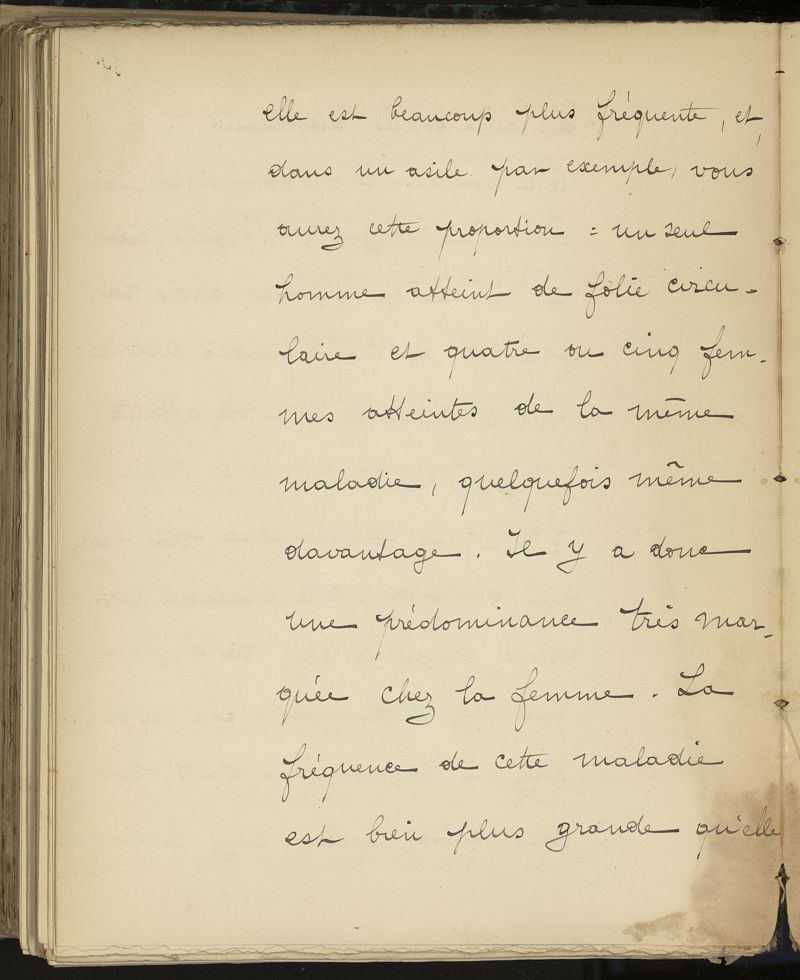 elle est beaucoup plus fréquente, et,
dans un asile par exemple, vous
aurez cette proportion = un seul
homme atteint de folie circu-
laire et quatre ou cinq fem-
mes atteintes de la même
maladie, quelquefois même
davantage. Il y a donc
une prédominance très mar-
quée chez la femme. La
fréquence de cette maladie
est bien plus grande qu'elle